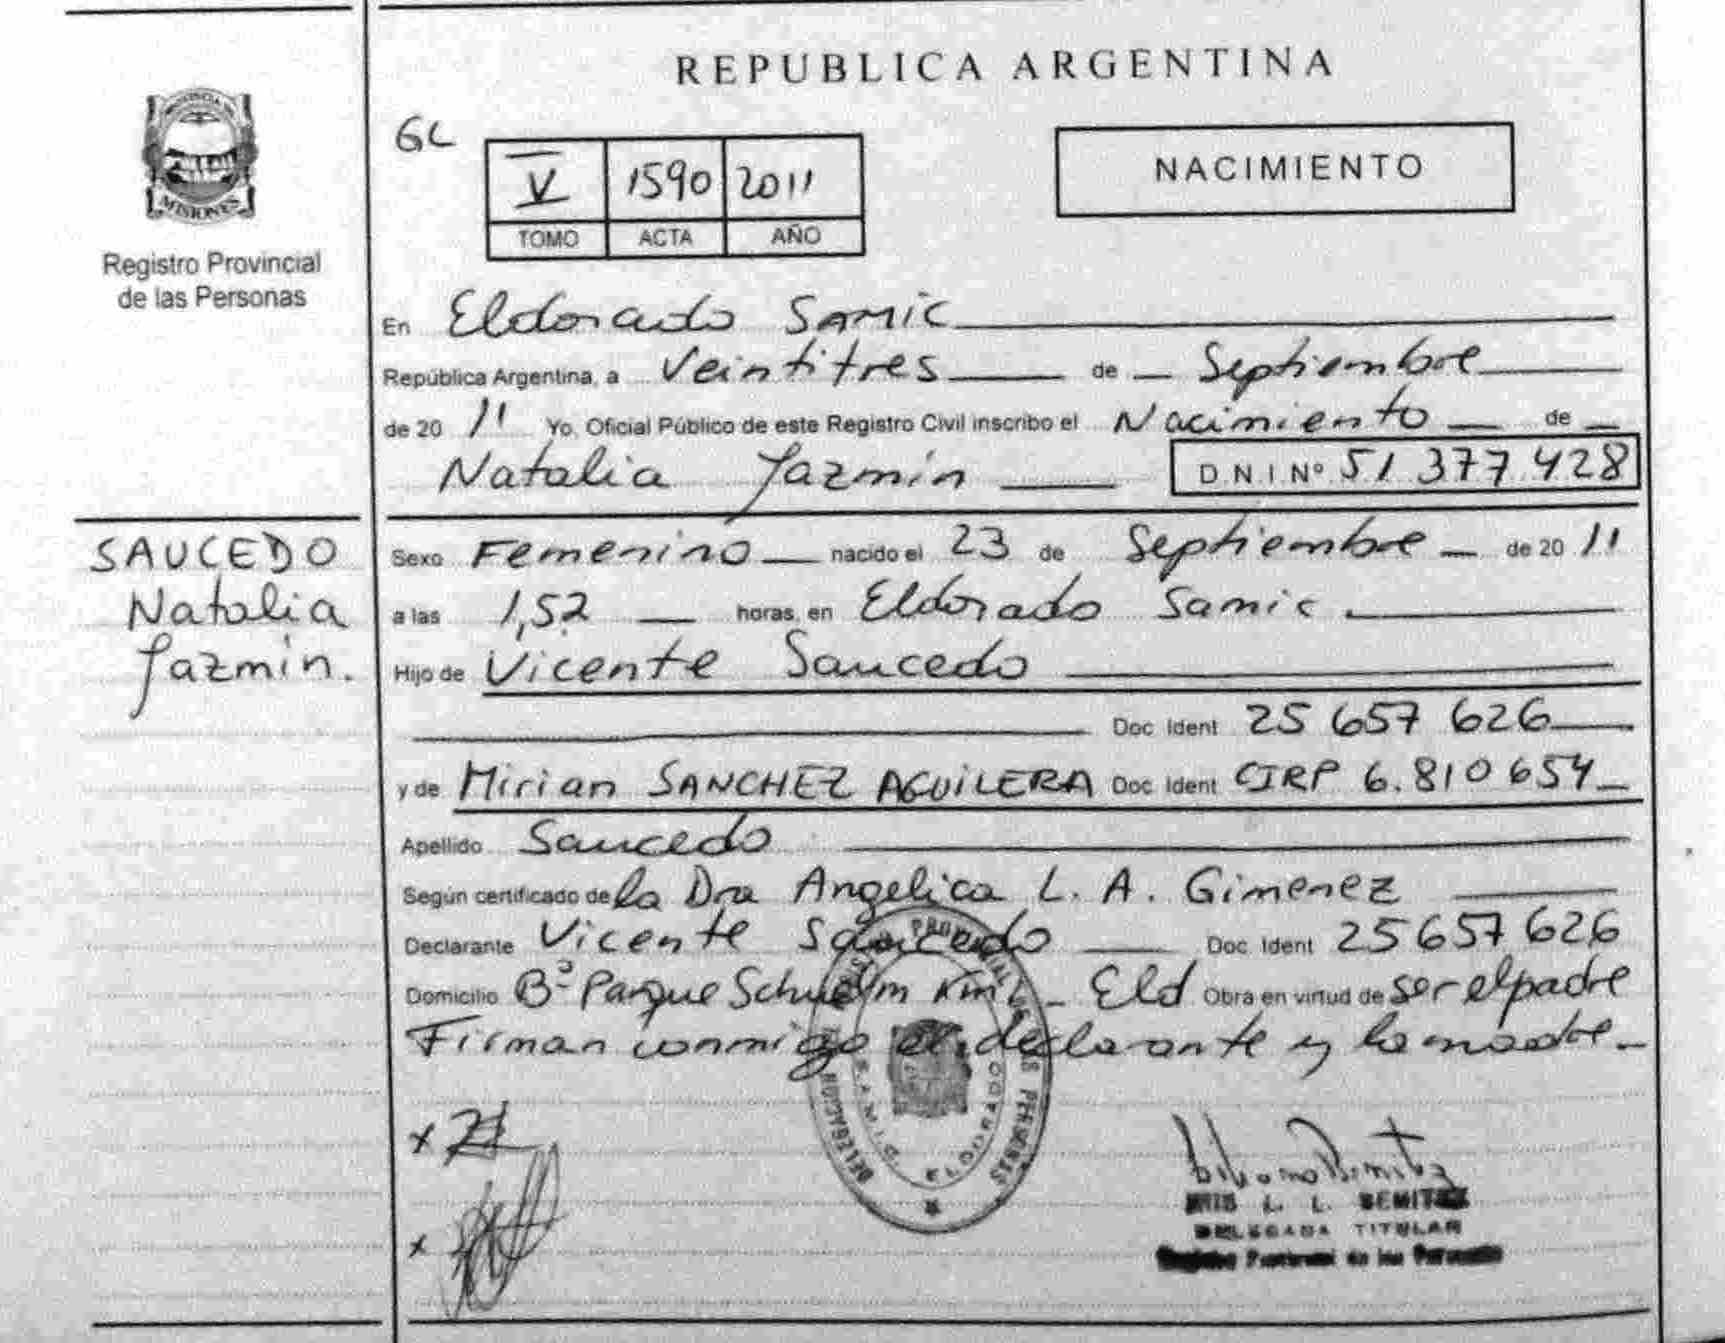 REPUBLICA ARGENTINA
PROVINCIA DE
MISIONES
Registro Provincial
de las Personas
GL
V 1590 2011
TOMO ACTA AÑO
NACIMIENTO
En Eldorado SAMIC
República Argentina, a Veintitres de Septiembre
de 20 11 Yo, Oficial Público de este Registro Civil inscribo el Nacimiento de
Natalia Jazmín D.N.I. Nº 51 377 428
SAUCEDO
Natalia
Jazmín.
Sexo Femenino nacido el 23 de Septiembre de 20 11
a las 1,52 horas, en Eldorado Samic
Hijo de Vicente Saucedo
Doc Ident 25 657 626
y de Mirian SANCHEZ AGUILERA Doc Ident CIRP 6.810 654
Apellido Saucedo
Según certificado de la Dra Angelica L. A. Gimenez
Declarante Vicente Saucedo Doc. Ident 25 657 626
Domicilio Bº Parque Km Eld Obra en virtud de ser el padre
Firman conmigo el declarante y la madre
PROVINCIAL DE LAS PERSONAS
DELEGACION
ELDORADO
x
x
L. L. BENITEZ
DELEGADA TITULAR
Registro Provincial de las Personas